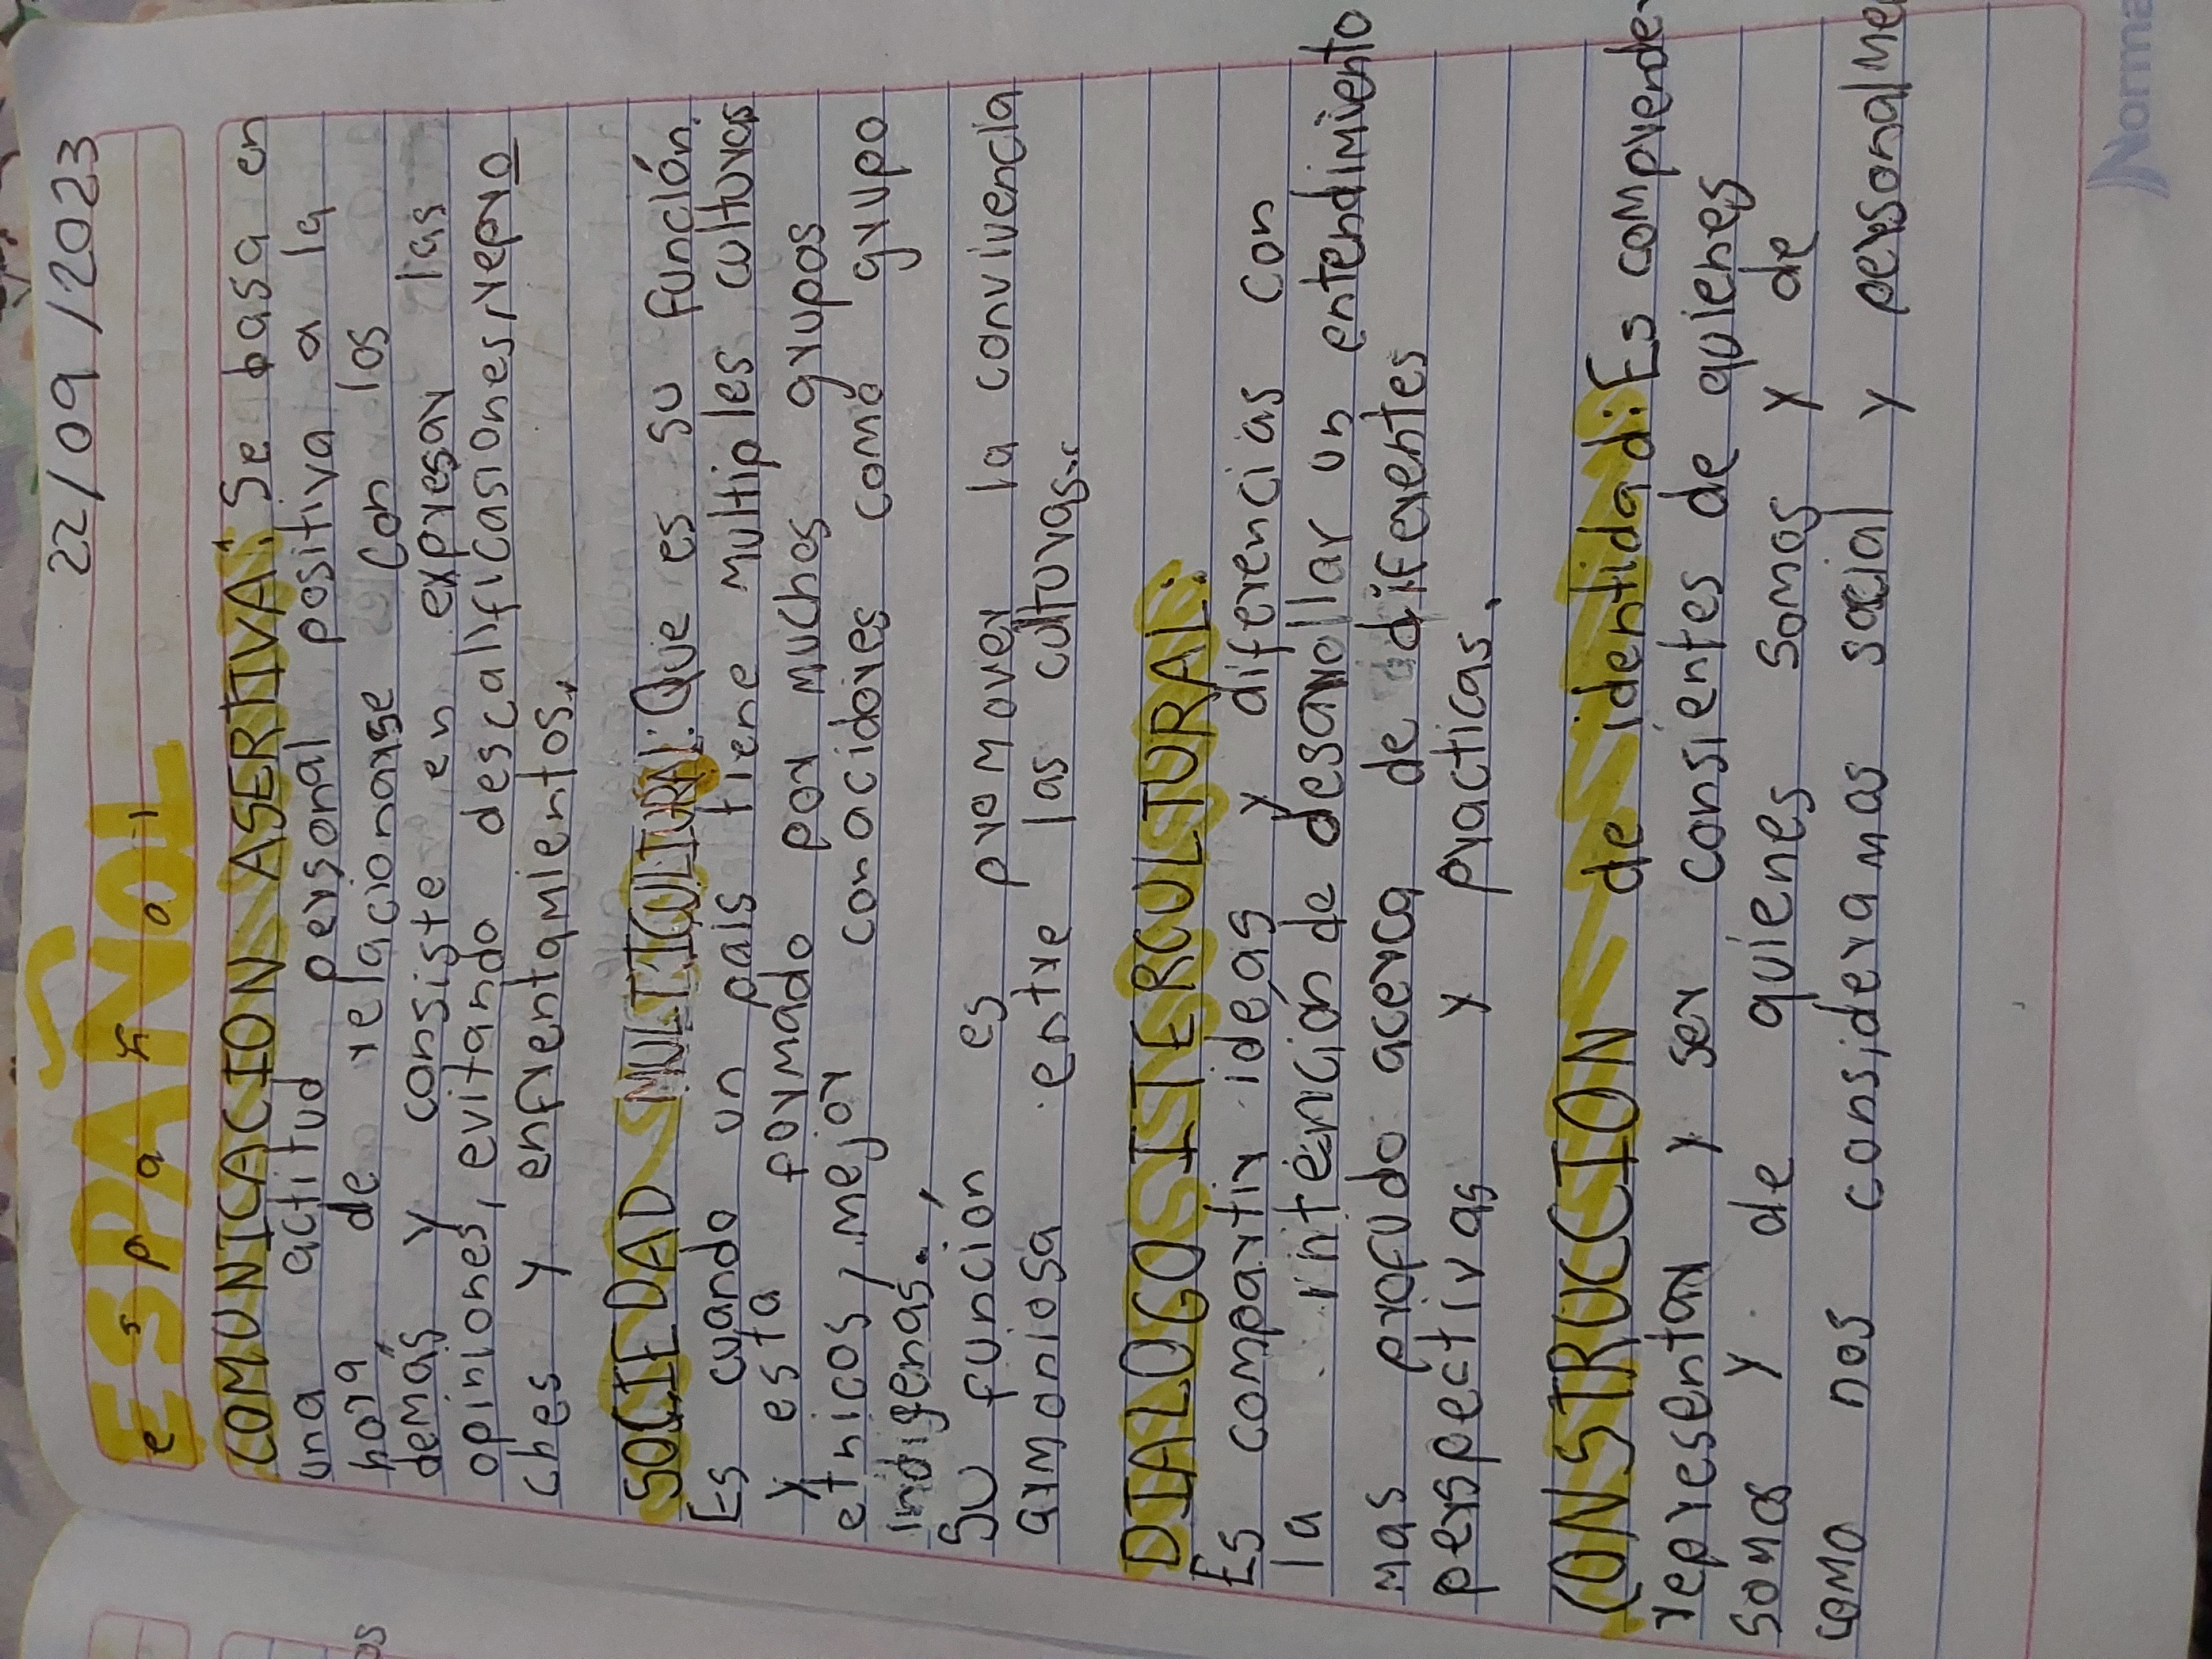 22/09/2023
ESPAÑOL
español
COMUNICACION ASERTIVA: Se basa en
una actitud personal positiva a la
hora de relacionarse con los
demás y consiste en expresar las
opiniones, evitando descalificasiones, repro
ches y enfrentamientos.
SOCIEDAD MULTICULTURAL: Que es su función.
Es cuando un pais tiene multiples culturas
y esta formado por muchos grupos
etnicos, mejor conocidores como grupo
indigenas.
Su función es promover la convivencia
armoniosa entre las culturas.
DIALOGOS ITERCULTURAL:
Es compartir ideas y diferencias con
la intención de desarrollar un entendimiento
mas profudo acerca de diferentes
perspectivas y practicas.
CONSTRUCCION de identidad: Es comprender
representar y ser consientes de quienes
somos y de quienes somos y de
como nos consideramos social y personalme
Norma
os